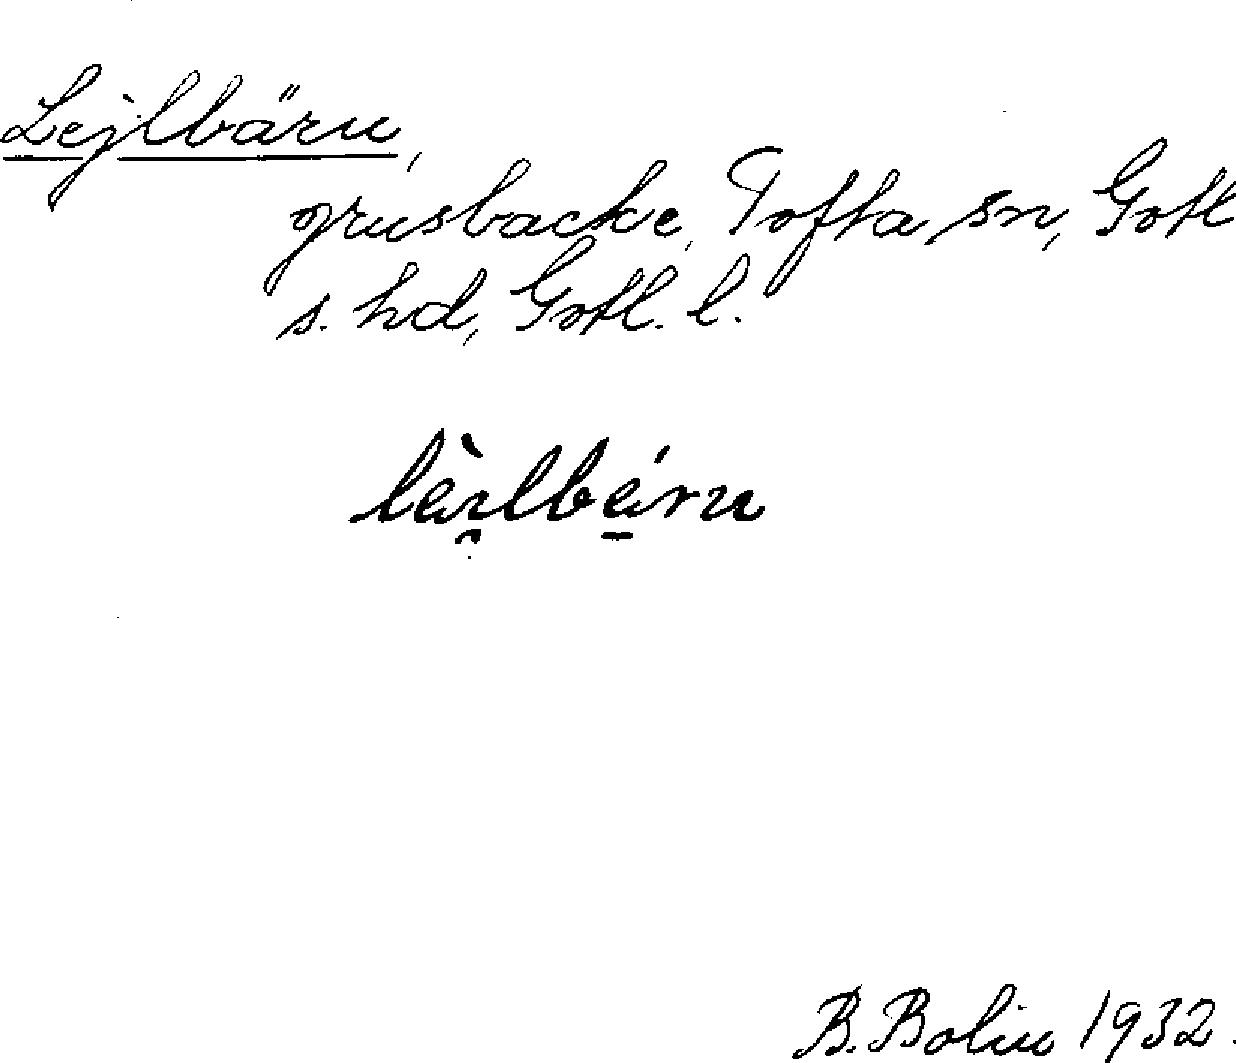 Lejlbäru,
grusbacke, Tofta sn, Gotl
s. hd, Gotl. l.
lèi̯lbé̱ru
B. Bolin 1932.